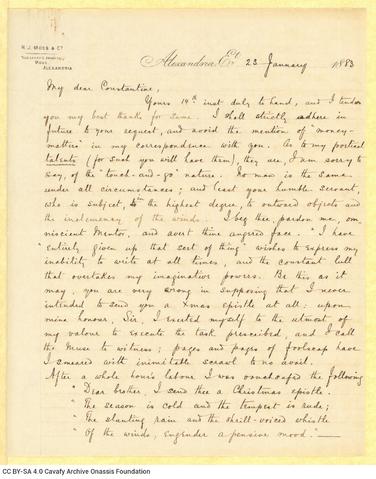 R. J. MOSS & Co.
ALEXANDRIA
Alexandria, Egt. 23 January 1883
My dear Constantine,
Yours 14th inst duly to hand, and I tender
you my best thanks for same. I shall strictly adhere in
future to your request, and avoid the mention of "money-
matters" in my correspondence with you. As to my poetical
talents (for such you will have them), they are, I am sorry to
say, of the "touch-and-go" nature. No man is the same
under all circumstances; and least your humble servant,
who is subject, to the highest degree, to outward objects and
the inclemency of the winds. I beg thee, pardon me, om-
niscient Mentor, and avert thine angred face. "I have
"entirely given up that sort of thing" wishes to express my
inability to write at all times, and the constant lull
that overtakes my imaginative powers. Be this as it
may, you are very wrong in supposing that I never
intended to send you a Xmas epistle at all: upon
mine honour, Sir, I exerted myself to the utmost of
my valour to execute the task prescribed, and I call
the Muse to witness; pages and pages of foolscap have
I smeared with inimitable scrawl to no avail.
After a whole hour's labour I was vouchsafed the following
"Dear brother, I send thee a Christmas epistle.
"The season is cold and the tempest is rude;
"The slanting rain and the shrill-voiced whistle
"Of the winds, engender a pensive mood. —
CC BY-SA 4.0 Cavafy Archive Onassis Foundation